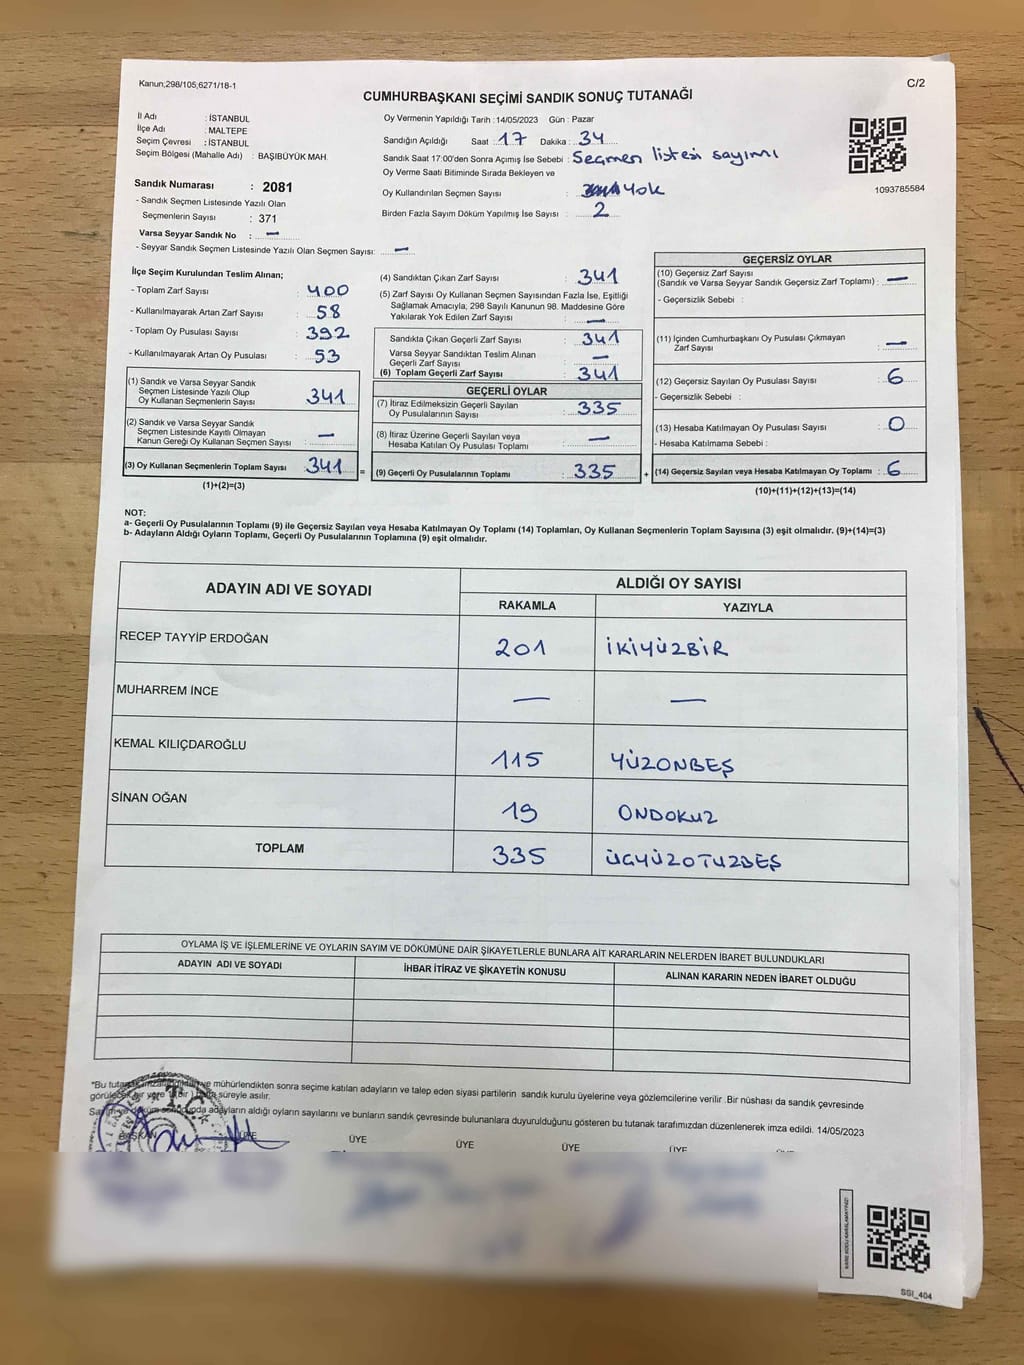 Kanun;298/105;6271/18-1
C/2
CUMHURBAŞKANI SEÇİMİ SANDIK SONUÇ TUTANAĞI
İl Adı : İSTANBUL
İlçe Adı : MALTEPE
Seçim Çevresi : İSTANBUL
Seçim Bölgesi (Mahalle Adı) : BAŞIBÜYÜK MAH.
Sandık Numarası : 2081
- Sandık Seçmen Listesinde Yazılı Olan
Seçmenlerin Sayısı : 371
Varsa Seyyar Sandık No : —
- Seyyar Sandık Seçmen Listesinde Yazılı Olan Seçmen Sayısı: —
Oy Vermenin Yapıldığı Tarih : 14/05/2023 Gün : Pazar
Sandığın Açıldığı Saat : 17 Dakika : 34
Sandık Saat 17:00'den Sonra Açımış İse Sebebi : Seçmen listesi sayımı
Oy Verme Saati Bitiminde Sırada Bekleyen ve
Oy Kullandırılan Seçmen Sayısı : Yok
Birden Fazla Sayım Döküm Yapılmış İse Sayısı : 2
1093785584
İlçe Seçim Kurulundan Teslim Alınan;
- Toplam Zarf Sayısı : 400
- Kullanılmayarak Artan Zarf Sayısı : 58
- Toplam Oy Pusulası Sayısı : 392
- Kullanılmayarak Artan Oy Pusulası : 53
(1) Sandık ve Varsa Seyyar Sandık
Seçmen Listesinde Yazılı Olup
Oy Kullanan Seçmenlerin Sayısı : 341
(2) Sandık ve Varsa Seyyar Sandık
Seçmen Listesinde Kayıtlı Olmayan
Kanun Gereği Oy Kullanan Seçmen Sayısı : —
(3) Oy Kullanan Seçmenlerin Toplam Sayısı : 341 =
(1)+(2)=(3)
(4) Sandıktan Çıkan Zarf Sayısı : 341
(5) Zarf Sayısı Oy Kullanan Seçmen Sayısından Fazla İse, Eşitliği
Sağlamak Amacıyla; 298 Sayılı Kanunun 98. Maddesine Göre
Yakılarak Yok Edilen Zarf Sayısı : —
Sandıkta Çıkan Geçerli Zarf Sayısı : 341
Varsa Seyyar Sandıktan Teslim Alınan
Geçerli Zarf Sayısı : —
(6) Toplam Geçerli Zarf Sayısı : 341
GEÇERLİ OYLAR
(7) İtiraz Edilmeksizin Geçerli Sayılan
Oy Pusulalarının Sayısı : 335
(8) İtiraz Üzerine Geçerli Sayılan veya
Hesaba Katılan Oy Pusulası Toplamı : —
(9) Geçerli Oy Pusulalarının Toplamı : 335 +
GEÇERSİZ OYLAR
(10) Geçersiz Zarf Sayısı
(Sandık ve Varsa Seyyar Sandık Geçersiz Zarf Toplamı) : —
- Geçersizlik Sebebi :
(11) İçinden Cumhurbaşkanı Oy Pusulası Çıkmayan
Zarf Sayısı : —
(12) Geçersiz Sayılan Oy Pusulası Sayısı : 6
- Geçersizlik Sebebi :
(13) Hesaba Katılmayan Oy Pusulası Sayısı : 0
- Hesaba Katılmama Sebebi :
(14) Geçersiz Sayılan veya Hesaba Katılmayan Oy Toplamı : 6
(10)+(11)+(12)+(13)=(14)
NOT:
a- Geçerli Oy Pusulalarının Toplamı (9) ile Geçersiz Sayılan veya Hesaba Katılmayan Oy Toplamı (14) Toplamları, Oy Kullanan Seçmenlerin Toplam Sayısına (3) eşit olmalıdır. (9)+(14)=(3)
b- Adayların Aldığı Oyların Toplamı, Geçerli Oy Pusulalarının Toplamına (9) eşit olmalıdır.
ADAYIN ADI VE SOYADI ALDIĞI OY SAYISI
RAKAMLA YAZIYLA
RECEP TAYYİP ERDOĞAN 201 İKİYÜZBİR
MUHARREM İNCE — —
KEMAL KILIÇDAROĞLU 115 YÜZONBEŞ
SİNAN OĞAN 19 ONDOKUZ
TOPLAM 335 ÜÇYÜZOTUZBEŞ
OYLAMA İŞ VE İŞLEMLERİNE VE OYLARIN SAYIM VE DÖKÜMÜNE DAİR ŞİKAYETLERLE BUNLARA AİT KARARLARIN NELERDEN İBARET BULUNDUKLARI
ADAYIN ADI VE SOYADI İHBAR İTİRAZ VE ŞİKAYETİN KONUSU ALINAN KARARIN NEDEN İBARET OLDUĞU
"Bu mühürlendikten sonra seçime katılan adayların ve talep eden siyasi partilerin sandık kurulu üyelerine veya gözlemcilerine verilir .Bir nüshası da sandık çevresinde
süreyle asılır.
adayların aldığı oyların sayılarını ve bunların sandık çevresinde bulunanlara duyurulduğunu gösteren bu tutanak tarafımızdan düzenlenerek imza edildi. 14/05/2023
BAŞKAN ÜYE ÜYE ÜYE ÜYE ÜYE
T.C.
SGI_404